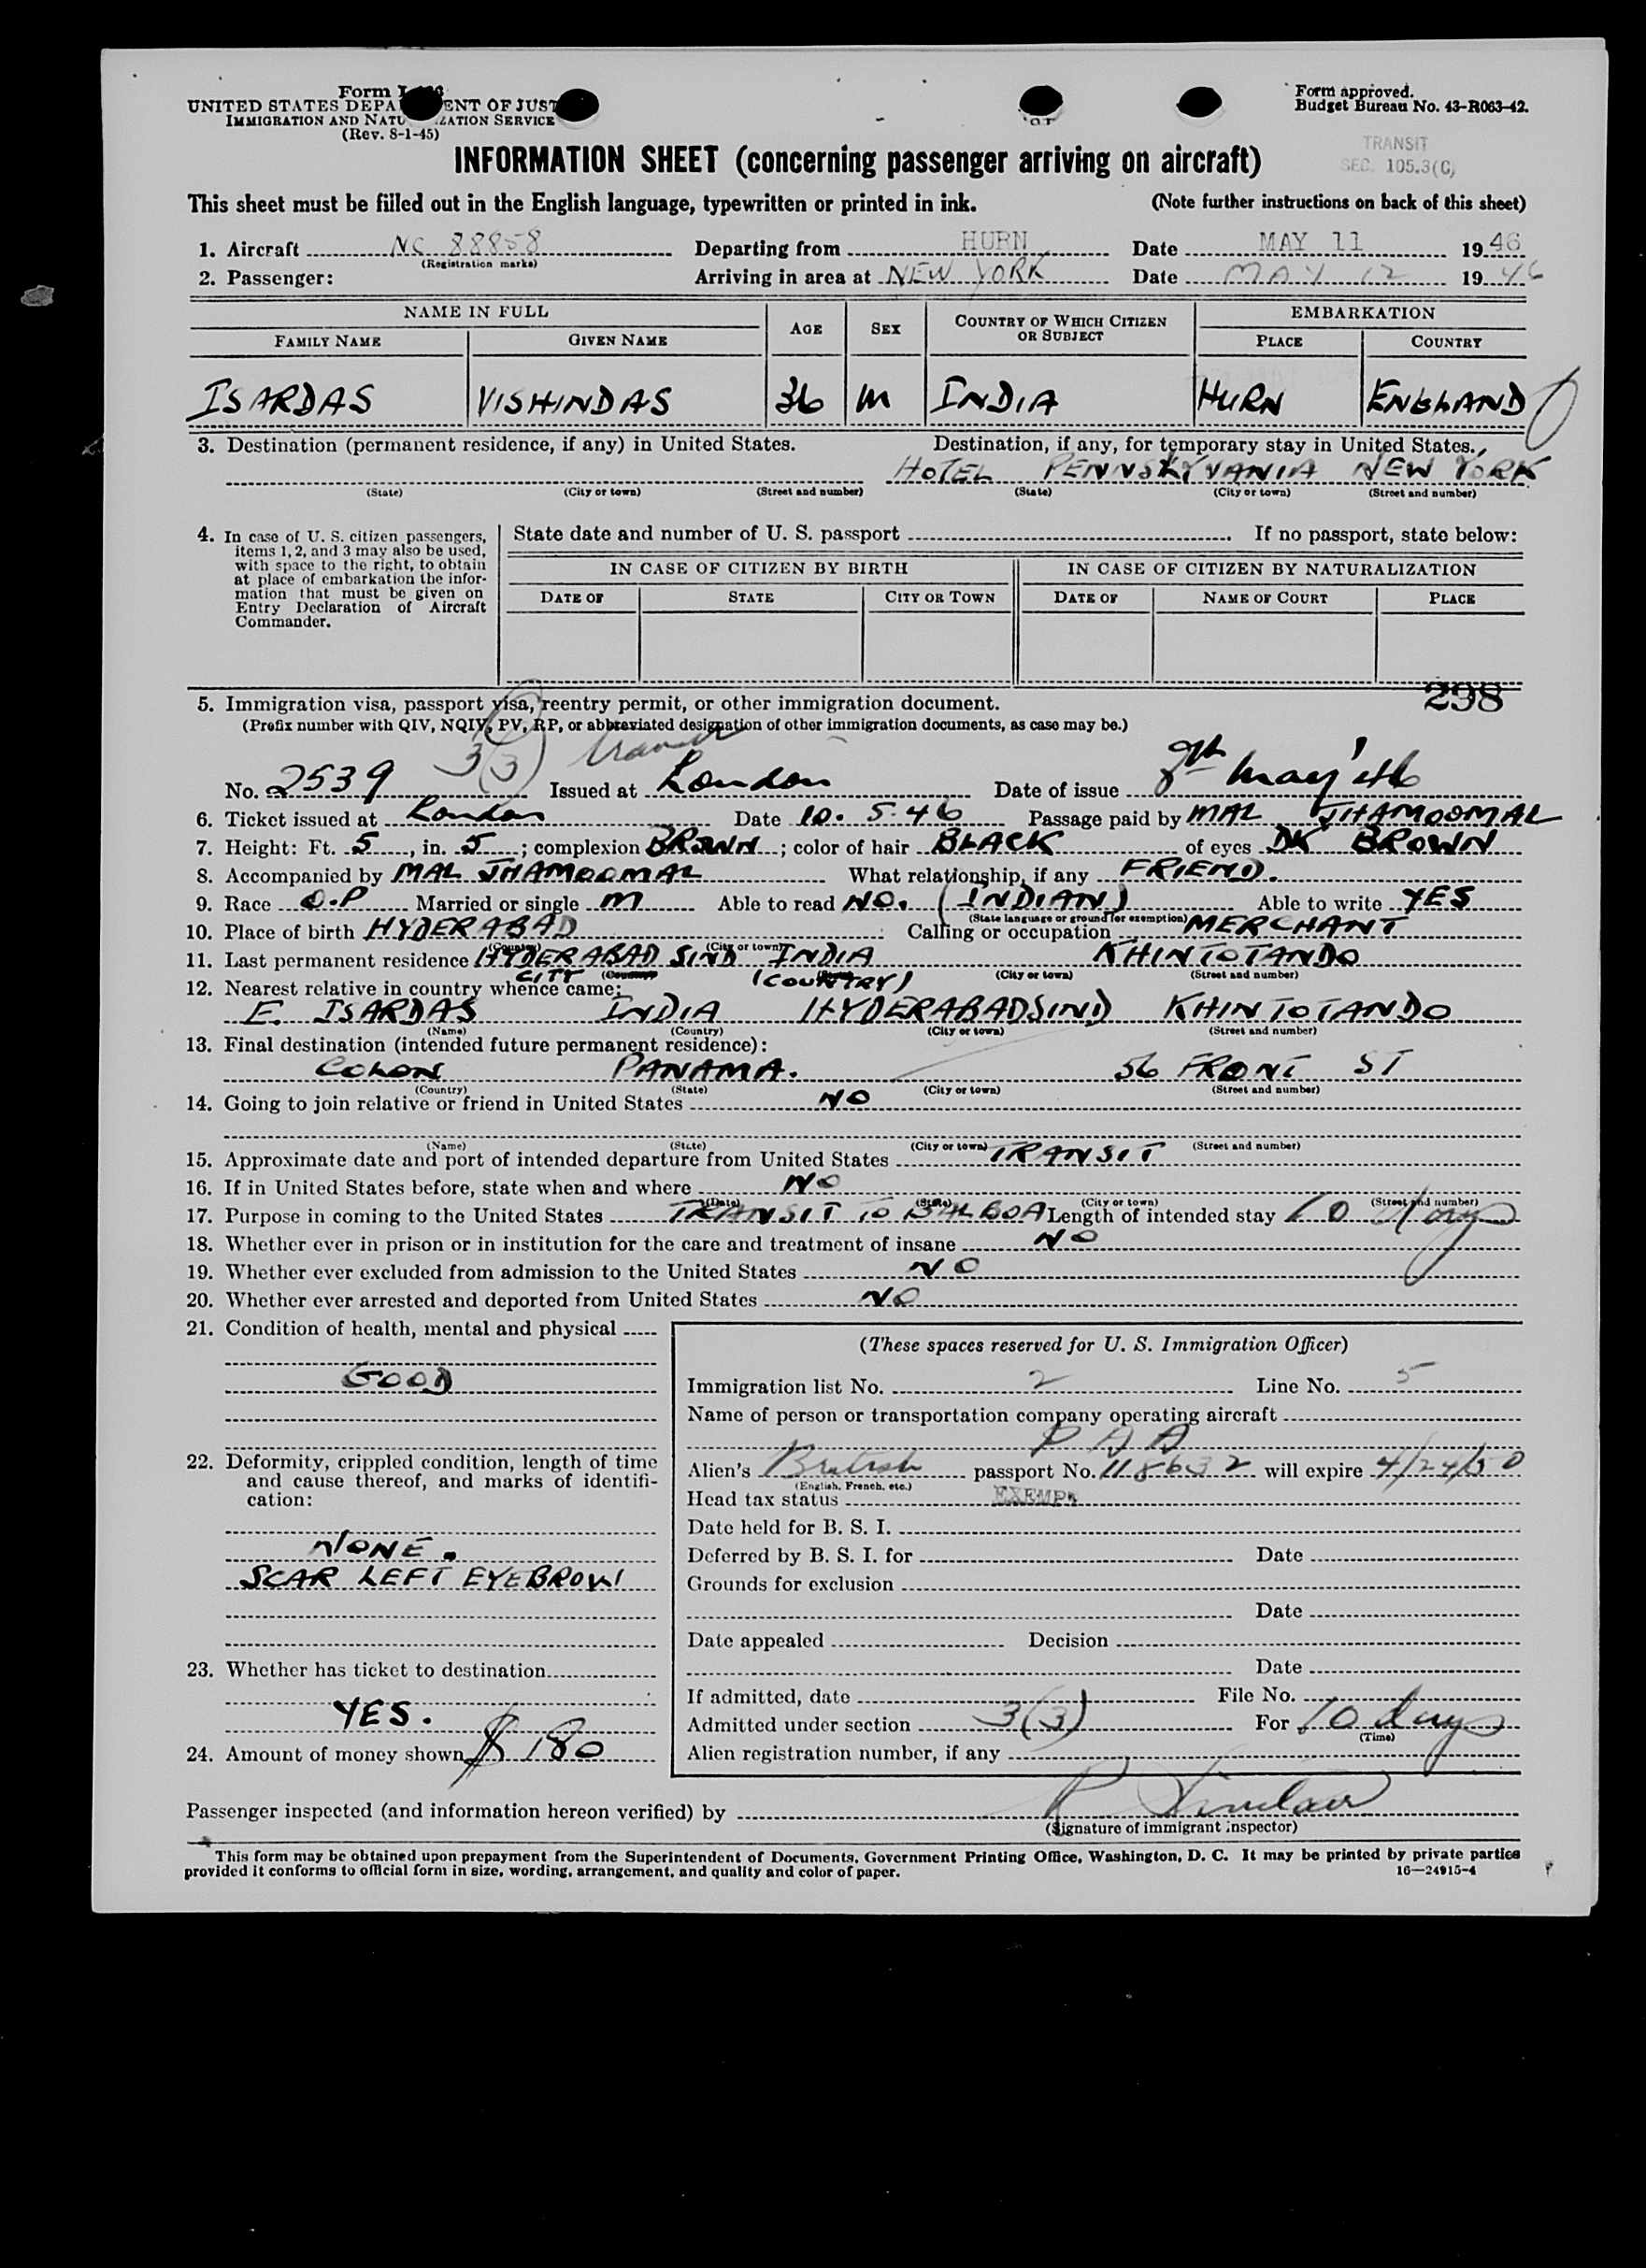 Form
UNITED STATES DEPA ENT OF JUST
IMMIGRATION AND NATU IZATION SERVICE
(Rev. 8-1-45)
Form approved.
Budget Bureau No. 43-R063-42.
TRANSIT
SEC. 105.3(C)
INFORMATION SHEET (concerning passenger arriving on aircraft)
This sheet must be filled out in the English language, typewritten or printed in ink. (Note further instructions on back of this sheet)
1. Aircraft NC 88858 Departing from HURN Date MAY 11 1946
(Registration marks)
2. Passenger: Arriving in area at NEW YORK Date MAY 12 1946
NAME IN FULL AGE SEX COUNTRY OF WHICH CITIZEN OR SUBJECT EMBARKATION
FAMILY NAME GIVEN NAME PLACE COUNTRY
ISARDAS VISHINDAS 36 M INDIA HURN ENGLAND
3. Destination (permanent residence, if any) in United States. Destination, if any, for temporary stay in United States.
HOTEL PENNVSKYVANIA NEW YORK
(State) (City or town) (Street and number) (State) (City or town) (Street and number)
4. In case of U. S. citizen passengers, items 1, 2, and 3 may also be used, with space to the right, to obtain at place of embarkation the information that must be given on Entry Declaration of Aircraft Commander.
State date and number of U. S. passport If no passport, state below:
IN CASE OF CITIZEN BY BIRTH IN CASE OF CITIZEN BY NATURALIZATION
DATE OF STATE CITY OR TOWN DATE OF NAME OF COURT PLACE
298
5. Immigration visa, passport visa, reentry permit, or other immigration document.
(Prefix number with QIV, NQIV, PV, RP, or abbreviated designation of other immigration documents, as case may be.)
3(3) transit
No. 2539 Issued at London Date of issue 8th May '46
6. Ticket issued at London Date 10. 5. 46 Passage paid by MAL JHAMOOMAL
7. Height: Ft. 5, in. 5; complexion BROWN; color of hair BLACK of eyes DK BROWN
8. Accompanied by MAL JHAMOOMAL What relationship, if any FRIEND.
9. Race O.P Married or single M Able to read NO. (INDIAN) Able to write YES
(State language or ground for exemption)
10. Place of birth HYDERABAD Calling or occupation MERCHANT
(Country) (City or town)
11. Last permanent residence HYDERABAD SIND INDIA KHINTOTANDO
CITY (Country) (COUNTRY) (City or town) (Street and number)
12. Nearest relative in country whence came:
E. ISARDAS INDIA HYDERABADSIND KHINTOTANDO
(Name) (Country) (City or town) (Street and number)
13. Final destination (intended future permanent residence):
COLON PANAMA. 56 FRONT ST
(Country) (State) (City or town) (Street and number)
14. Going to join relative or friend in United States NO
(Name) (State) (City or town) (Street and number)
15. Approximate date and port of intended departure from United States TRANSIT
16. If in United States before, state when and where NO
(Date) (State) (City or town) (Street and number)
17. Purpose in coming to the United States TRANSIT TO BALBOA Length of intended stay 10 days
18. Whether ever in prison or in institution for the care and treatment of insane NO
19. Whether ever excluded from admission to the United States NO
20. Whether ever arrested and deported from United States NO
21. Condition of health, mental and physical
GOOD
22. Deformity, crippled condition, length of time and cause thereof, and marks of identification:
NONE.
SCAR LEFT EYEBROW
23. Whether has ticket to destination
YES.
24. Amount of money shown $ 180
(These spaces reserved for U. S. Immigration Officer)
Immigration list No. 2 Line No. 5
Name of person or transportation company operating aircraft
P A A
Alien's British passport No. 118632 will expire 4/24/50
(English, French, etc.)
Head tax status EXEMPT
Date held for B. S. I.
Deferred by B. S. I. for Date
Grounds for exclusion
Date
Date appealed Decision
Date
If admitted, date File No.
Admitted under section 3(3) For 10 days
(Time)
Alien registration number, if any
Passenger inspected (and information hereon verified) by R Sinclair
(Signature of immigrant inspector)
This form may be obtained upon prepayment from the Superintendent of Documents, Government Printing Office, Washington, D. C. It may be printed by private parties
provided it conforms to official form in size, wording, arrangement, and quality and color of paper. 16—24915-4